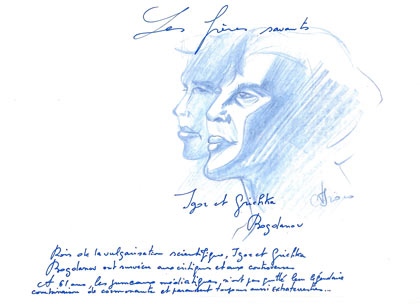 Les frères savants
Igor et Grichka
Bogdanov
Rois de la vulgarisation scientifique, Igor et Grichka
Bogdanov ont survécu aux critiques et aux controverses.
A 61 ans, les jumeaux médiatiques n'ont pas quitté leur légendaire
combinaison de cosmonaute et paraissent toujours aussi